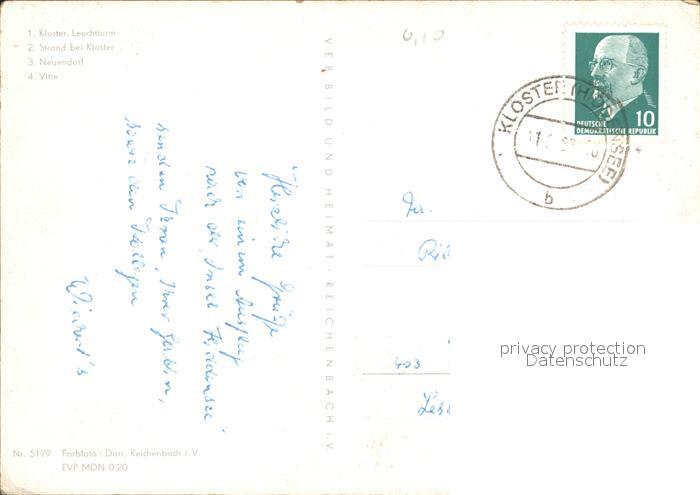 1. Kloster, Leuchtturm
2. Strand bei Kloster
3. Neuendorf
4. Vitte
VER BILD UND HEIMAT · REICHENBACH i. V.
0,10
DEUTSCHE
DEMOKRATISCHE REPUBLIK
10
KLOSTER (HIDDENSEE)
b
"Herzliche Grüße
von einem Ausflug
nach der Insel Hiddensee"
senden Ihnen, Ihrer
sowie den Kollegen
403
privacy protection
Datenschutz
Nr. 5179 Farbfoto: Darr, Reichenbach i. V.
EVP MDN 0,20